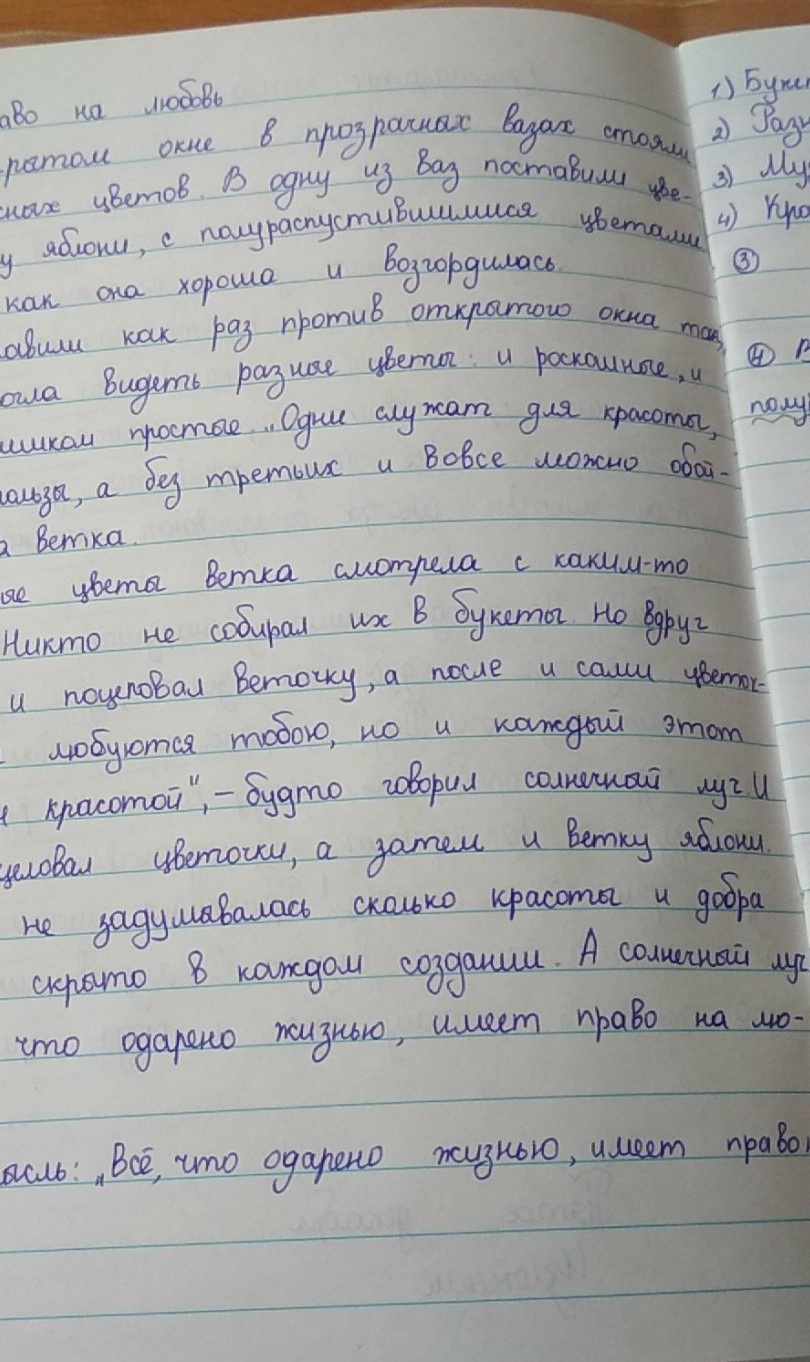 аво на любовь
рытом окне в прозрачных вазах стояли
сных цветов. В одну из ваз поставили цве-
у яблони, с полураспустившимися цветами
как она хороша и возгордилась.
авили как раз против открытого окна так,
огла видеть разные цветы: и роскошные, и
ишком простые. „Одни служат для красоты,
ользы, а без третьих и вовсе можно обой-
а ветка.
ые цветы ветка смотрела с каким-то
Никто не собирал их в букеты. Но вдруг
и поцеловал веточку, а после и сами цветоч-
любуются тобою, но и каждый этот
й красотой", - будто говорил солнечный луч. И
целовал цветочки, а затем и ветку яблони.
не задумывалась сколько красоты и добра
скрыто в каждом создании. А солнечный луч
что одарено жизнью, имеет право на лю-
ысль: „Всё, что одарено жизнью, имеет право
1) Буке
2) Разн
3) Му
4) Кра
③
④ В
полу